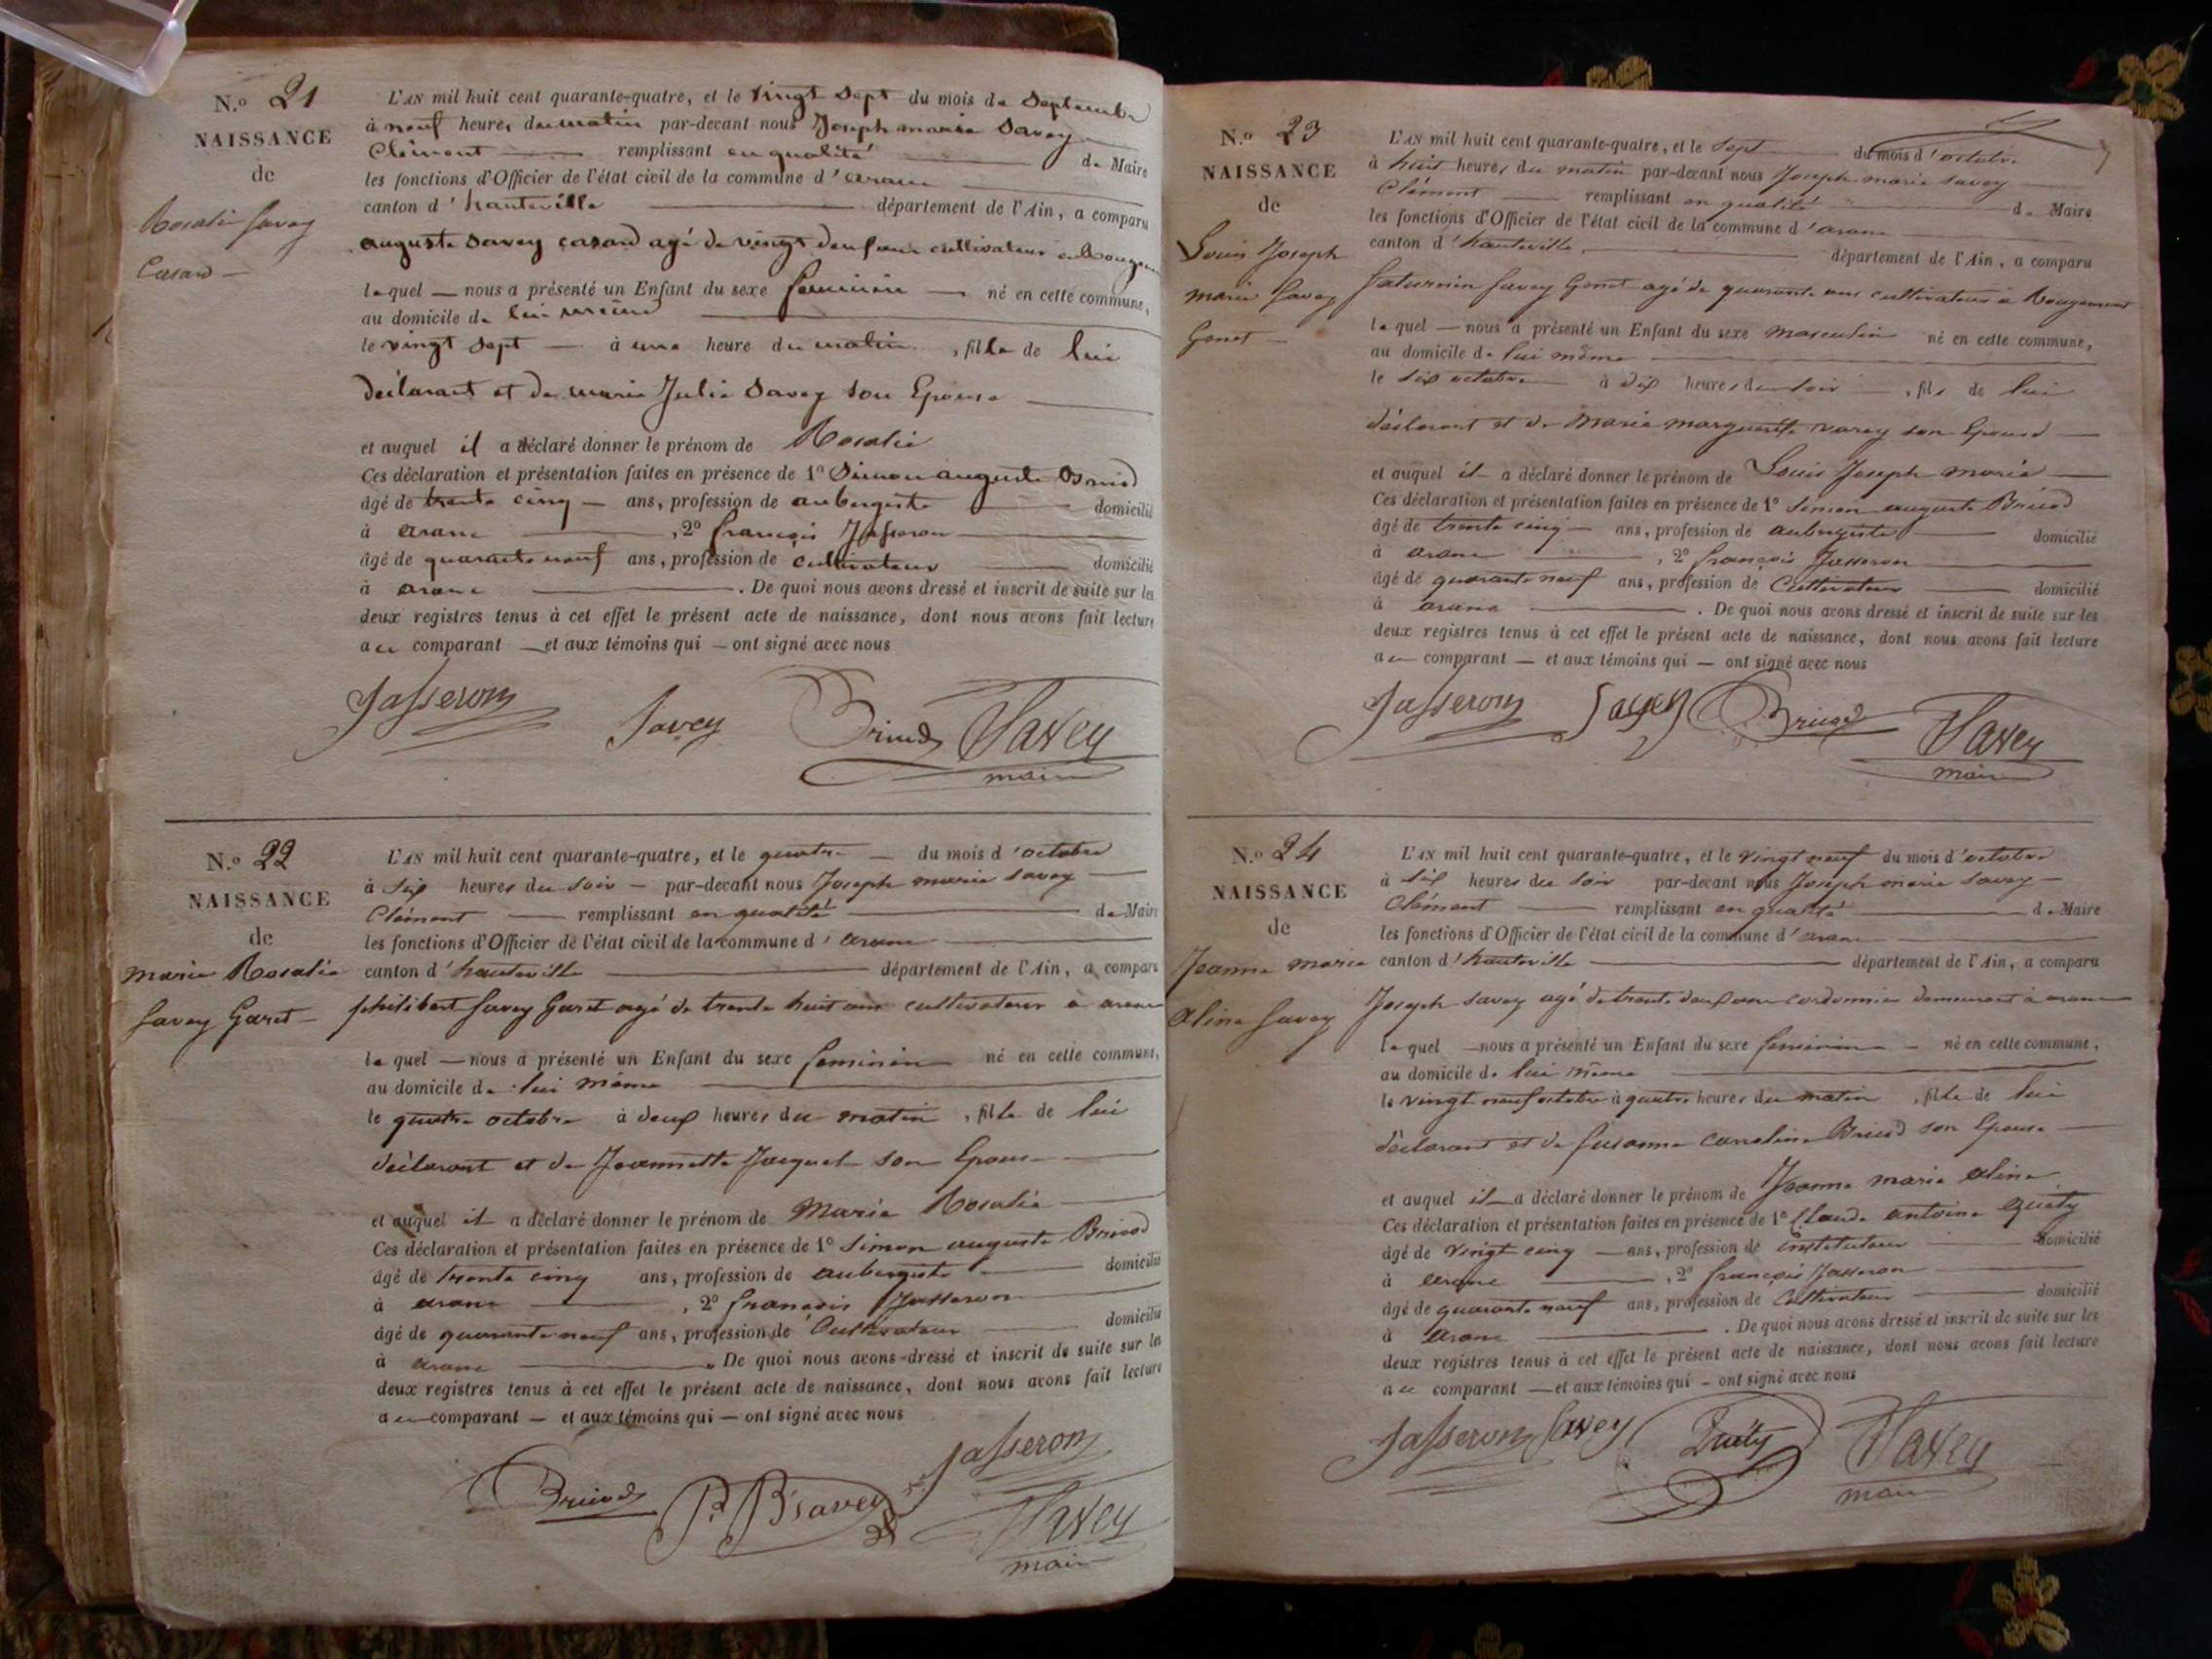 N.o 21
NAISSANCE
de
Rosalie Savey
Casard
L'AN mil huit cent quarante-quatre, et le vingt sept du mois de Septembre
à neuf heures du matin par-devant nous Joseph marie Savey
Clément remplissant en qualité de Maire
les fonctions d'Officier de l'état civil de la commune d'arane
canton d'hauteville département de l'Ain, a comparu
auguste Savey casard agé de vingt deux ans cultivateur
lequel nous a présenté un Enfant du sexe feminin né en cette commune,
au domicile de lui même
le vingt sept à une heure du matin, fille de lui
déclarant et de marie Julie Savey son Epouse
et auquel il a déclaré donner le prénom de Rosalie
Ces déclaration et présentation faites en présence de 1o Simon auguste Brucod
âgé de trente cinq ans, profession de aubergiste domicilié
à arane, 2o françois Jasseron
âgé de quarante neuf ans, profession de cultivateur domicilié
à arane. De quoi nous avons dressé et inscrit de suite sur les
deux registres tenus à cet effet le présent acte de naissance, dont nous avons fait lecture
au comparant et aux témoins qui ont signé avec nous
Jasseron Savey Savey
maire
N.o 22
NAISSANCE
de
marie Rosalie
Savey Garet
L'AN mil huit cent quarante-quatre, et le quatre du mois d'octobre
à six heures du soir par-devant nous Joseph marie Savey
Clément remplissant en qualité de Maire
les fonctions d'Officier de l'état civil de la commune d'arane
canton d'hauteville département de l'Ain, a comparu
philibert Savey Garet agé de trente huit ans cultivateur à arane
lequel nous a présenté un Enfant du sexe feminin né en cette commune,
au domicile de lui même
le quatre octobre à deux heures du matin, fille de lui
déclarant et de Jeannette Jacquet son Epouse
et auquel il a déclaré donner le prénom de Marie Rosalie
Ces déclaration et présentation faites en présence de 1o Simon auguste
âgé de trente cinq ans, profession de aubergiste domicilié
à arane, 2o françois Jasseron
âgé de quarante neuf ans, profession de Cultivateur domicilié
à arane. De quoi nous avons dressé et inscrit de suite sur les
deux registres tenus à cet effet le présent acte de naissance, dont nous avons fait lecture
au comparant et aux témoins qui ont signé avec nous
Jasseron
Savey
maire
N.o 23
NAISSANCE
de
Louis Joseph
marie Savey
Gonet
L'AN mil huit cent quarante-quatre, et le Sept du mois d'octobre
à huit heures du matin par-devant nous Joseph marie Savey
Clément remplissant en qualité de Maire
les fonctions d'Officier de l'état civil de la commune d'arane
canton d'hauteville département de l'Ain, a comparu
Saturnin Savey Gonet agé de quarante ans cultivateur à Rougemont
lequel nous a présenté un Enfant du sexe masculin né en cette commune,
au domicile de lui même
le six octobre à dix heures du soir, fils de lui
déclarant et de Marie marguerite varey son Epouse
et auquel il a déclaré donner le prénom de Louis Joseph marie
Ces déclaration et présentation faites en présence de 1o Simon auguste
âgé de trente cinq ans, profession de aubergiste domicilié
à arane, 2o françois Jasseron
âgé de quarante neuf ans, profession de Cultivateur domicilié
à arane. De quoi nous avons dressé et inscrit de suite sur les
deux registres tenus à cet effet le présent acte de naissance, dont nous avons fait lecture
au comparant et aux témoins qui ont signé avec nous
Jasseron Savey Savey
maire
N.o 24
NAISSANCE
de
Jeanne marie
Aline Savey
L'AN mil huit cent quarante-quatre, et le vingt neuf du mois d'octobre
à six heures du soir par-devant nous Joseph marie Savey
Clément remplissant en qualité de Maire
les fonctions d'Officier de l'état civil de la commune d'arane
canton d'hauteville département de l'Ain, a comparu
Joseph Savey agé de trente deux ans cordonnier demeurant à arane
lequel nous a présenté un Enfant du sexe feminin né en cette commune,
au domicile de lui même
le vingt neuf octobre à quatre heures du matin, fille de lui
déclarant et de Susanne caroline son Epouse
et auquel il a déclaré donner le prénom de Jeanne marie aline
Ces déclaration et présentation faites en présence de 1o Claude antoine
âgé de vingt cinq ans, profession de instituteur domicilié
à arane, 2o françois Jasseron
âgé de quarante neuf ans, profession de Cultivateur domicilié
à arane. De quoi nous avons dressé et inscrit de suite sur les
deux registres tenus à cet effet le présent acte de naissance, dont nous avons fait lecture
au comparant et aux témoins qui ont signé avec nous
Jasseron Savey Savey
maire